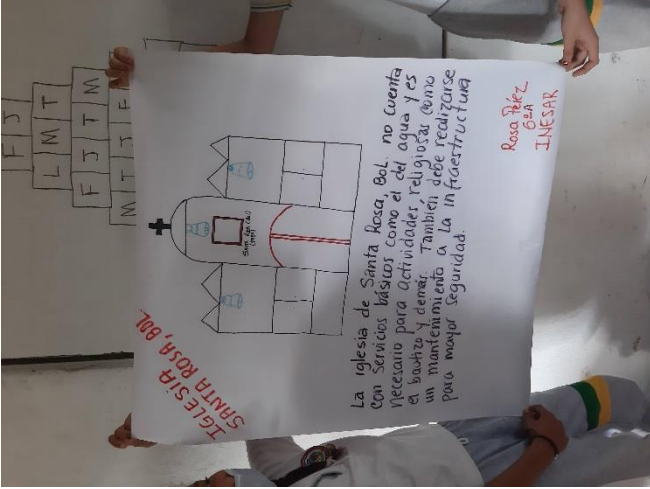 IGLESIA
SANTA ROSA, BOL.
La iglesia de Santa Rosa, BOL. no cuenta
con servicios básicos como el del agua y es
necesario para actividades religiosas como
el bautizo y demás. También debe realizarse
un mantenimiento a la infraestructura
para mayor seguridad.
Rosa Pérez
6ºA
INESAR
F J
L M T
F J T M
M T J F